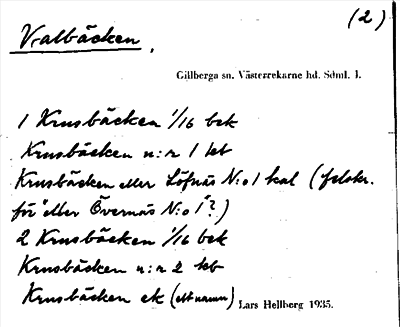 (2)
Valbäcken,
Gillberga sn. Västerrekarne hd. Sdml. 1.
1 Krusbäcken 1/16 bek
Krusbäcken n:r 1 teb
Krusbäcken eller Löfnäs N:o 1 kal (felskr.
för "eller Övernäs N:o 1"?)
2 Krusbäcken 1/16 bek
Krusbäcken n:r 2 teb
Krusbäcken ek (ett namn) Lars Hellberg 1935.